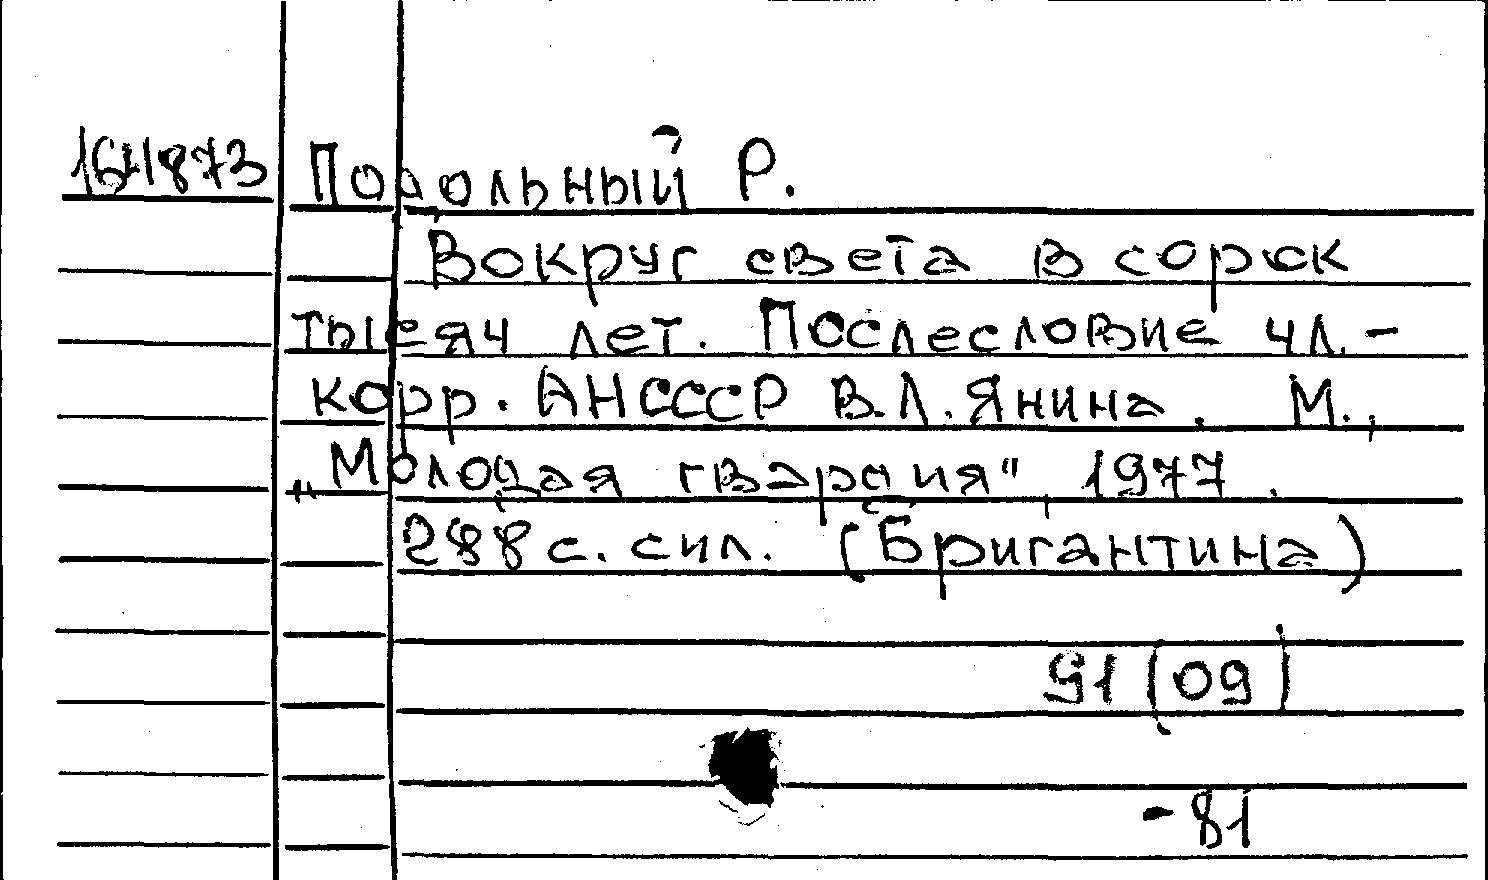 164873 Подольный Р.
Вокруг света в сорок
тысяч лет. Послесловие чл.-
корр. АНСССР В.Л. Янина. М.,
„Молодая гвардия", 1977.
288 с. сил. (Бригантина)
91(09)
-81